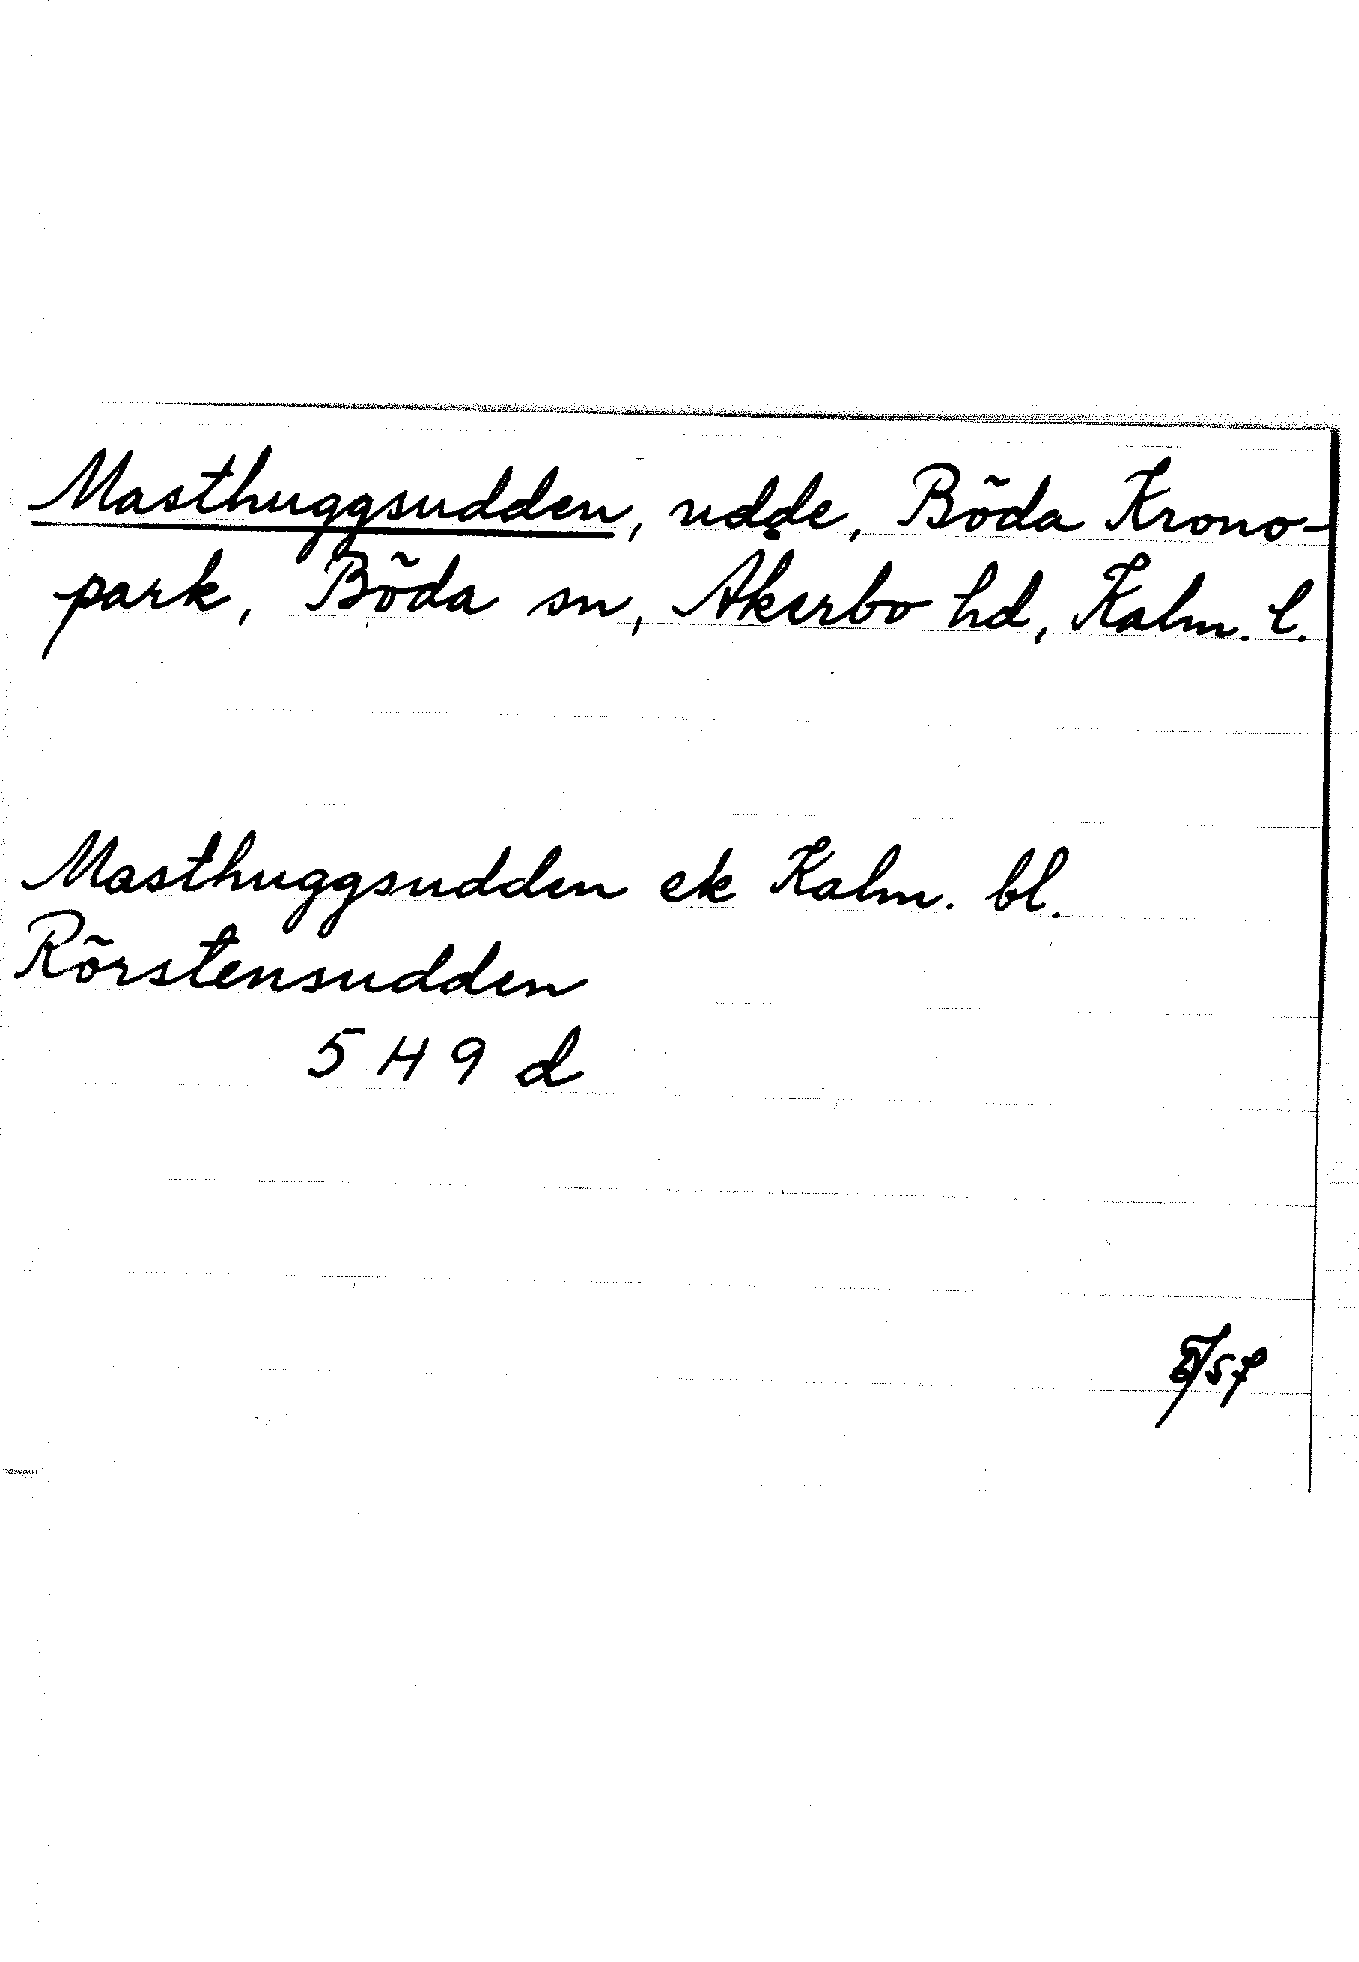 Masthuggsudden, udde, Böda Krono-
park, Böda sn, Åkerbo hd, Kalm. l.
Masthuggsudden ek Kalm. bl.
Rörstensudden
5 H 9 d